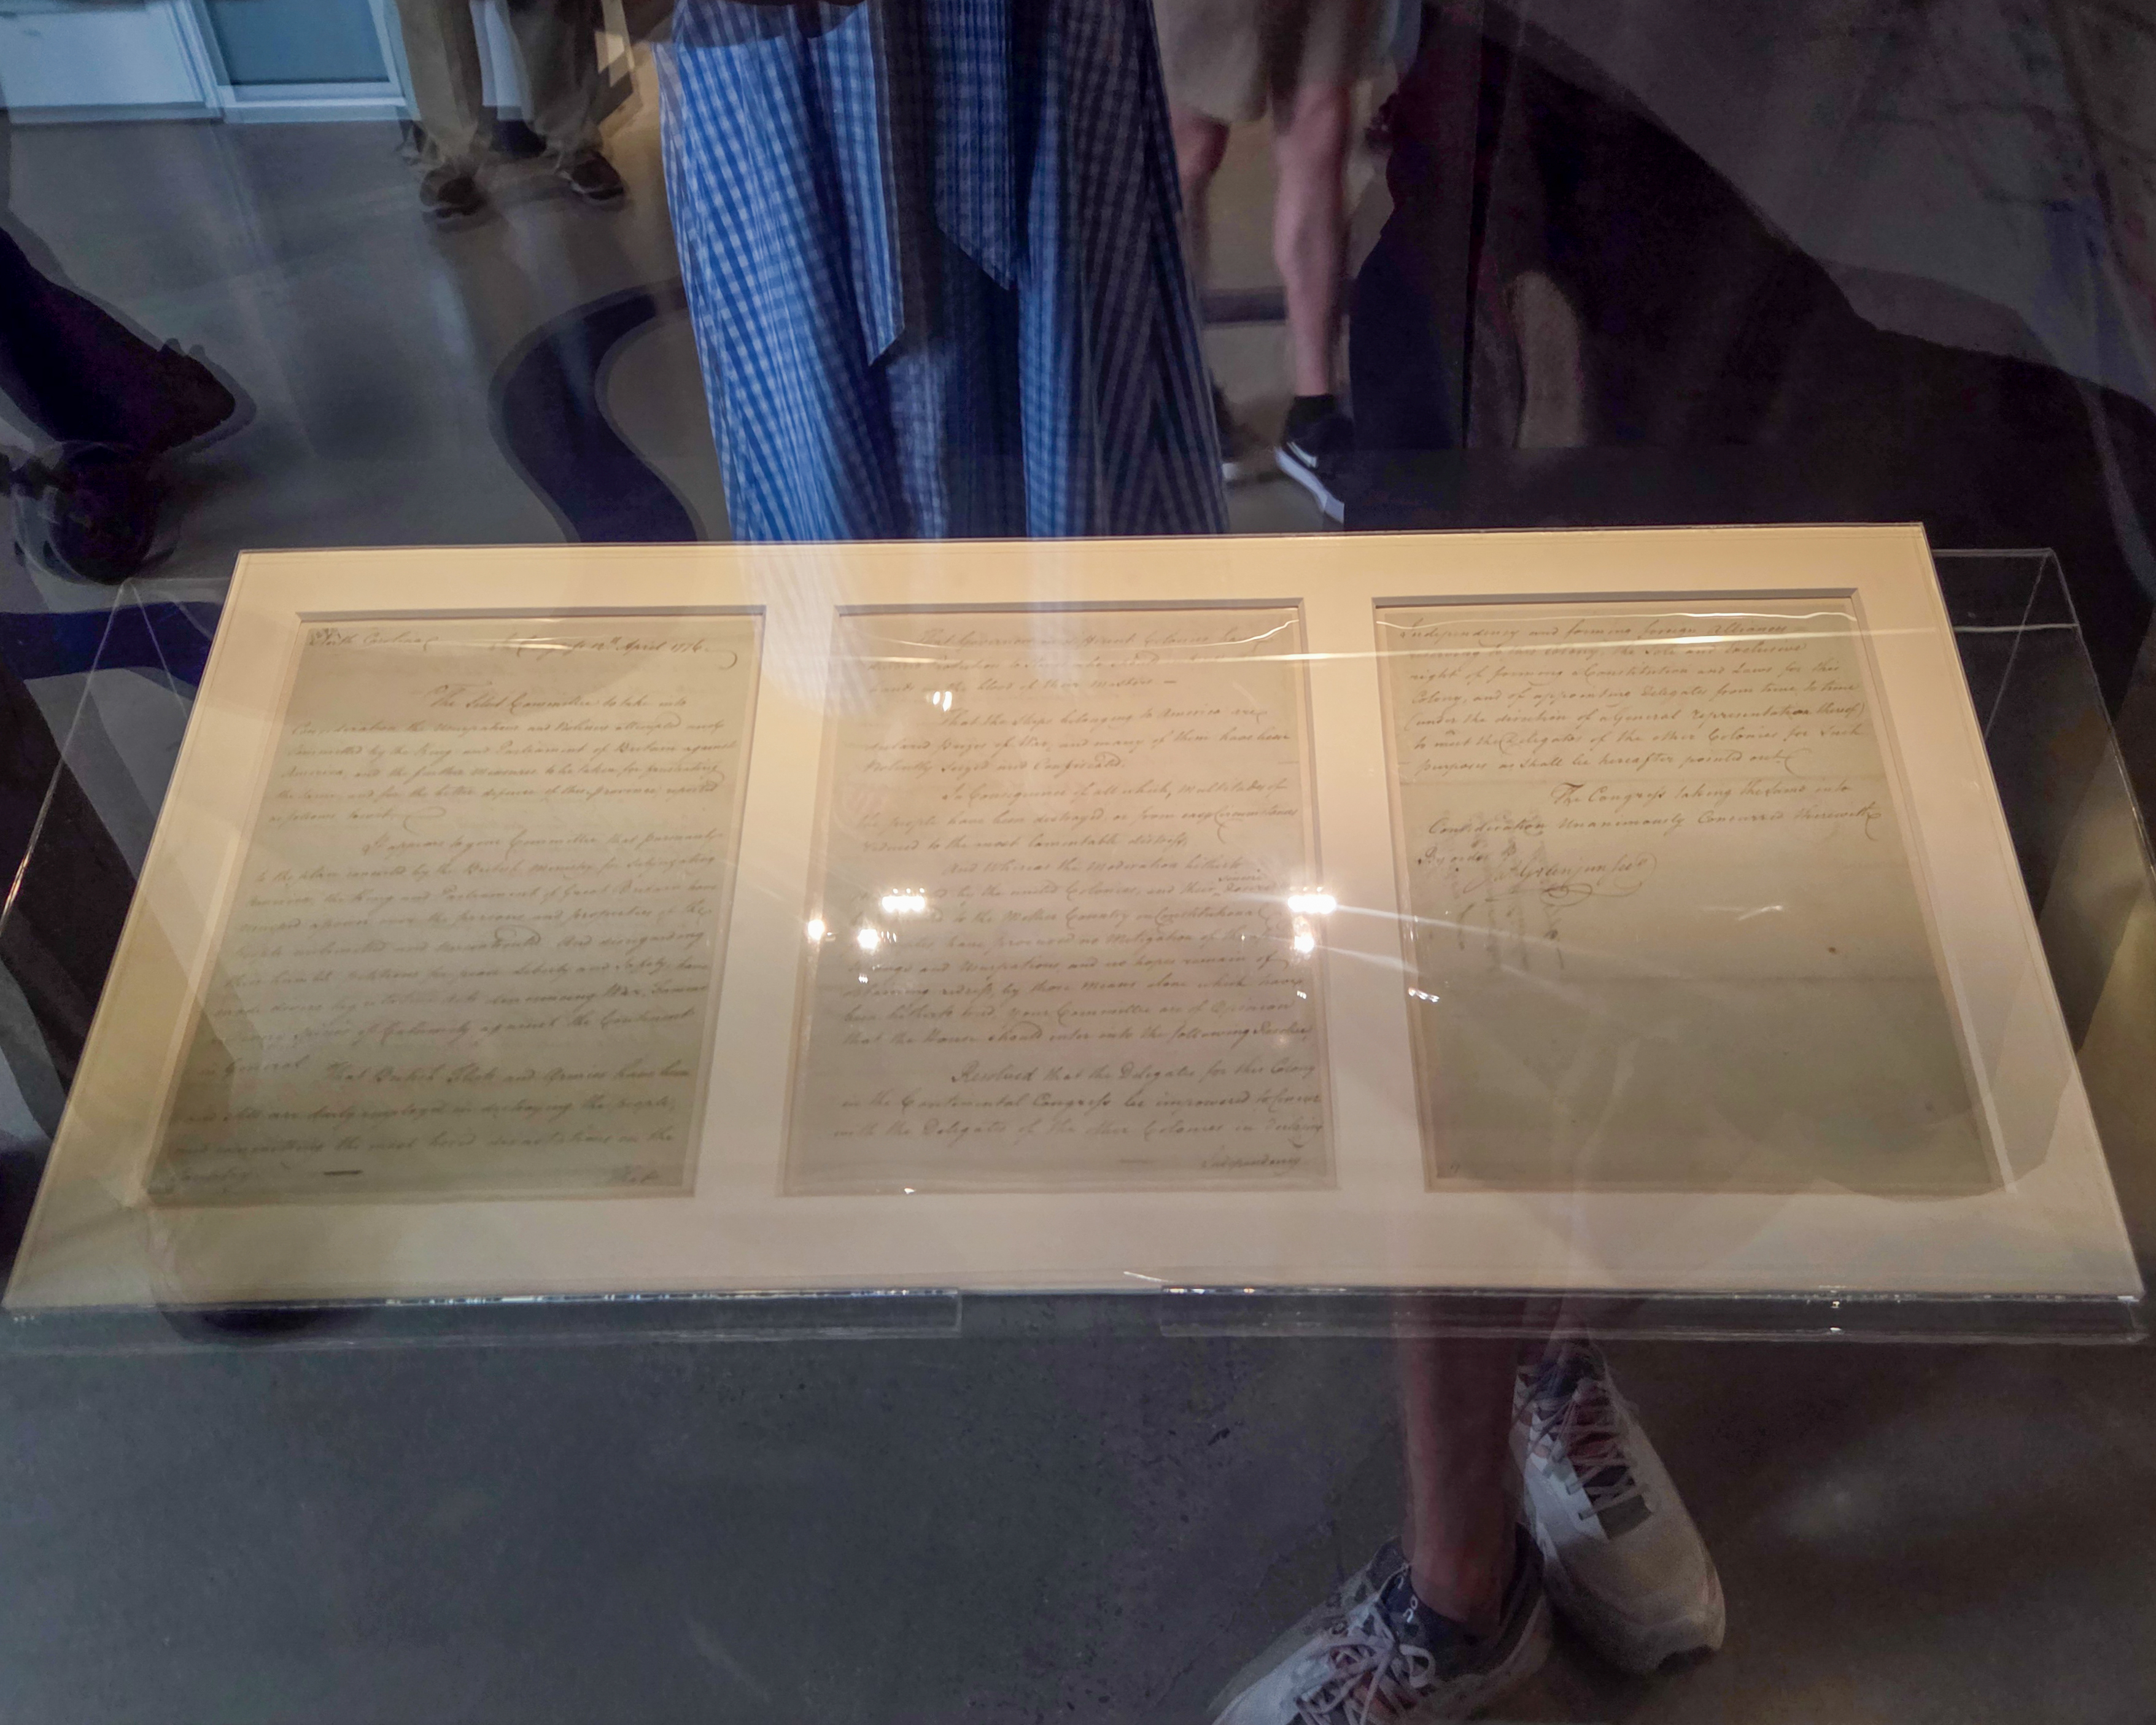 North Carolina
In Congress 12th April 1776.
The Select Committee to take into
Consideration the Usurpations and Violences attempted and
committed by the King and Parliament of Britain against
America, and the further Measures to be taken for frustrating
the same, and for the better defence of this Province reported
as follows, to wit,
It appears to your Committee that pursuant
to the plan concerted by the British Ministry for Subjugating
America, the King and Parliament of Great Britain have
usurped a power over the persons and properties of the
people unlimited and uncontrouled And disregarding
their humble petitions for peace, Liberty and Safety, have
made divers Legislative Acts, denouncing War, Famine
and every Species of Calamity against the Continent
in General
That British Fleets and Armies have been
and still are daily employed in destroying the people,
and committing the most horrid devastations on the
Country.
That
That Governors in different Colonies have
declared Protection to
hands in the blood of their Masters —
That the Ships belonging to America are
declared Prizes of War, and many of them have been
Violently Seized and Confiscated.
In Consequence of all which, Multitudes of
the people have been destroyed, or from easy Circumstances
reduced to the most lamentable distress,
And Whereas the Moderation hitherto
by the united Colonies, and their
Sincere
desire
to the Mother Country on Constitutional
have procured no Mitigation of the
Wrongs and Usurpations, and no hopes remain of
obtaining redress by those Means alone which have
been hitherto tried, your Committee are of Opinion
that the House should enter into the following Resolve,
Resolved that the Delegates for this Colony
in the Continental Congress be impowered to Concur
with the Delegates of the other Colonies in declaring
Independency
Independency and forming foreign Alliances,
reserving to this Colony the Sole and Exclusive
right of forming a Constitution and Laws for this
Colony, and of appointing Delegates from time to time
(under the direction of a General representation thereof)
to meet the Delegates of the other Colonies for Such
purposes as shall be hereafter pointed out.
The Congress taking the Same into
Consideration Unanimously Concurred therewith
By order
Jas Green jun Secr